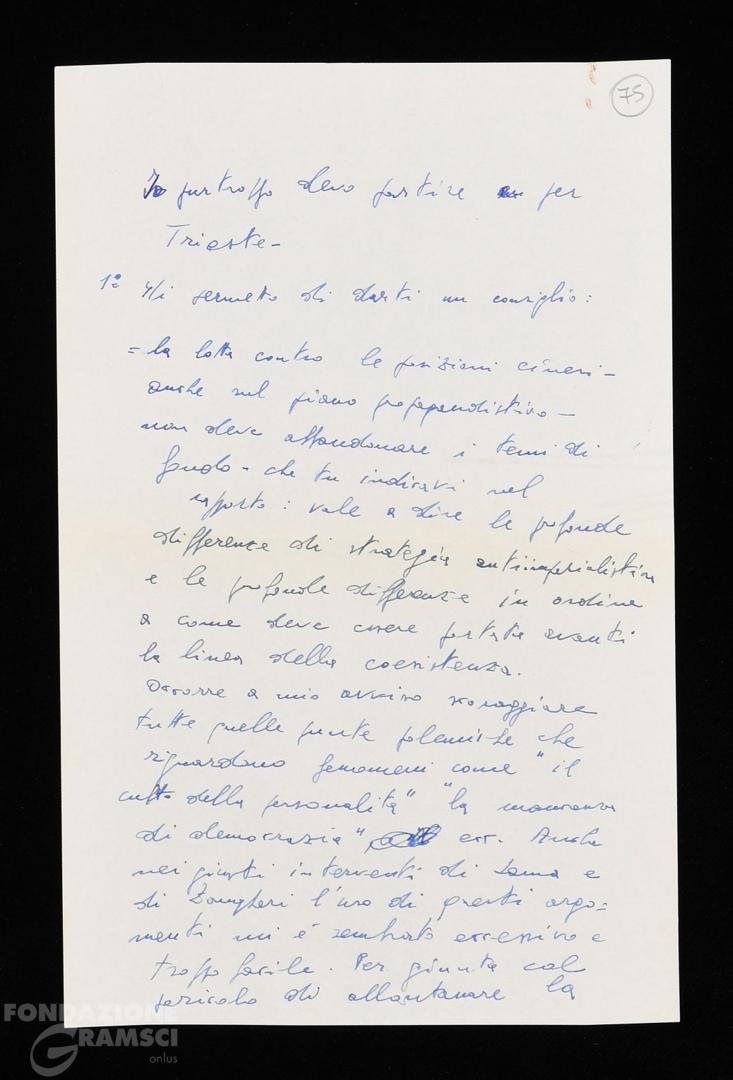 75
Io purtroppo devo partire per
Trieste -
1º Mi permetto di darti un consiglio:
= la lotta contro le posizioni cinesi -
anche sul piano propagandistico -
non deve abbandonare i temi di
fondo - che tu indicavi nel
rapporto: vale a dire le profonde
differenze di strategia antiimperialistica
e le profonde differenze in ordine
a come deve essere portata avanti
la linea della coesistenza.
Occorre a mio avviso scoraggiare
tutte quelle punte polemiche che
riguardano fenomeni come "il
culto della personalità" "la mancanza
di democrazia" ecc. Anche
nei giusti interventi di Lama e
di Zangheri l'uso di questi argo=
menti mi è sembrato eccessivo e
troppo facile. Per giunta col
pericolo di allontanare la
FONDAZIONE
GRAMSCI
onlus